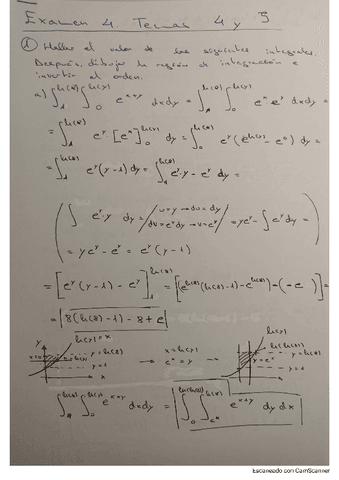 Examen 4. Temas 4 y 5
① Hallar el valor de las siguientes integrales.
Después, dibujar la región de integración e
invertir el orden.
a) ∫_1^{ln(8)} ∫_0^{ln(y)} e^{x+y} dxdy = ∫_1^{ln(8)} ∫_0^{ln(y)} e^x e^y dxdy =
= ∫_1^{ln(8)} e^y · [e^x]_0^{ln(y)} dy = ∫_1^{ln(8)} e^y (e^{ln(y)} - e^0) dy =
= ∫_1^{ln(8)} e^y (y-1) dy = ∫_1^{ln(8)} e^y · y - e^y dy =
( ∫ e^y · y dy = / u=y → du=dy / dv=e^y dy → v=e^y / = ye^y - ∫ e^y dy =
= ye^y - e^y = e^y (y-1) )
= [e^y (y-1) - e^y]_1^{ln(8)} = [(e^{ln(8)} (ln(8)-1) - e^{ln(8)}) - (-e)] =
= 8(ln(8)-1) - 8 + e
ln(y)=x
y
x=0
y=ln(8)
y=1
x
→ x=ln(y)
e^x = y →
ln(y)
ln(ln(8))
y=ln(8)
y=e^x
y=1
∫_1^{ln(8)} ∫_0^{ln(y)} e^{x+y} dxdy = ∫_0^{ln(ln(8))} ∫_{e^x}^{ln(8)} e^{x+y} dy dx
Escaneado con CamScanner